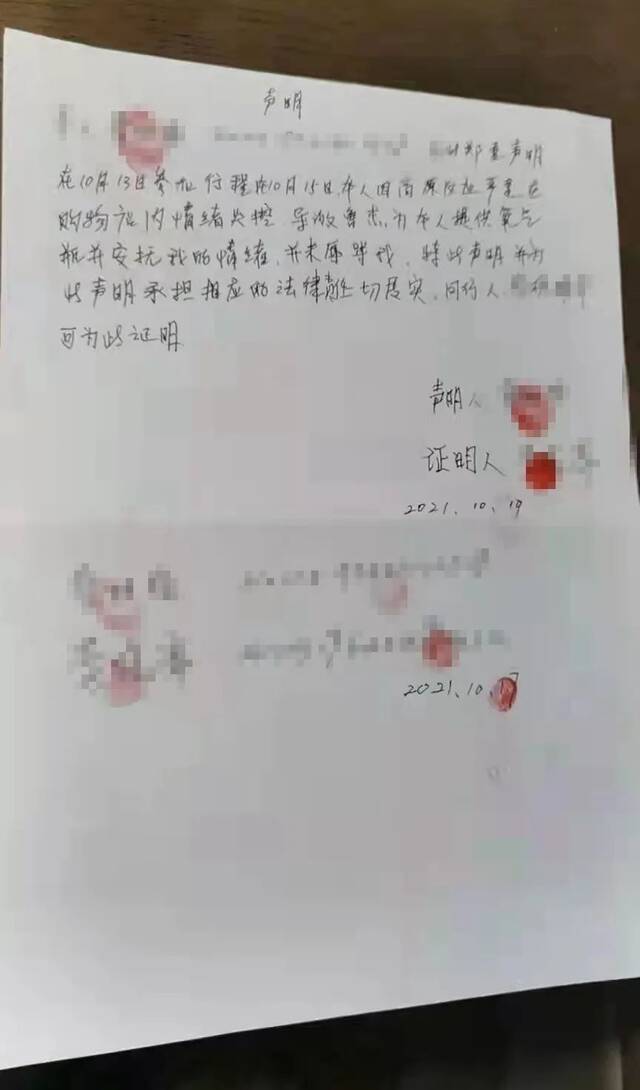 声明
郑重声明
在10月13日参加行程在10月15日本人因高原反应严重在
购物店内情绪失控 导游鲁杰,为本人提供氧气
瓶并安抚我的情绪,并未辱骂我,特此声明并为
此声明承担相应的法律责任切属实,同行人
可为此证明
声明人
证明人
2021.10.19
2021.10.17